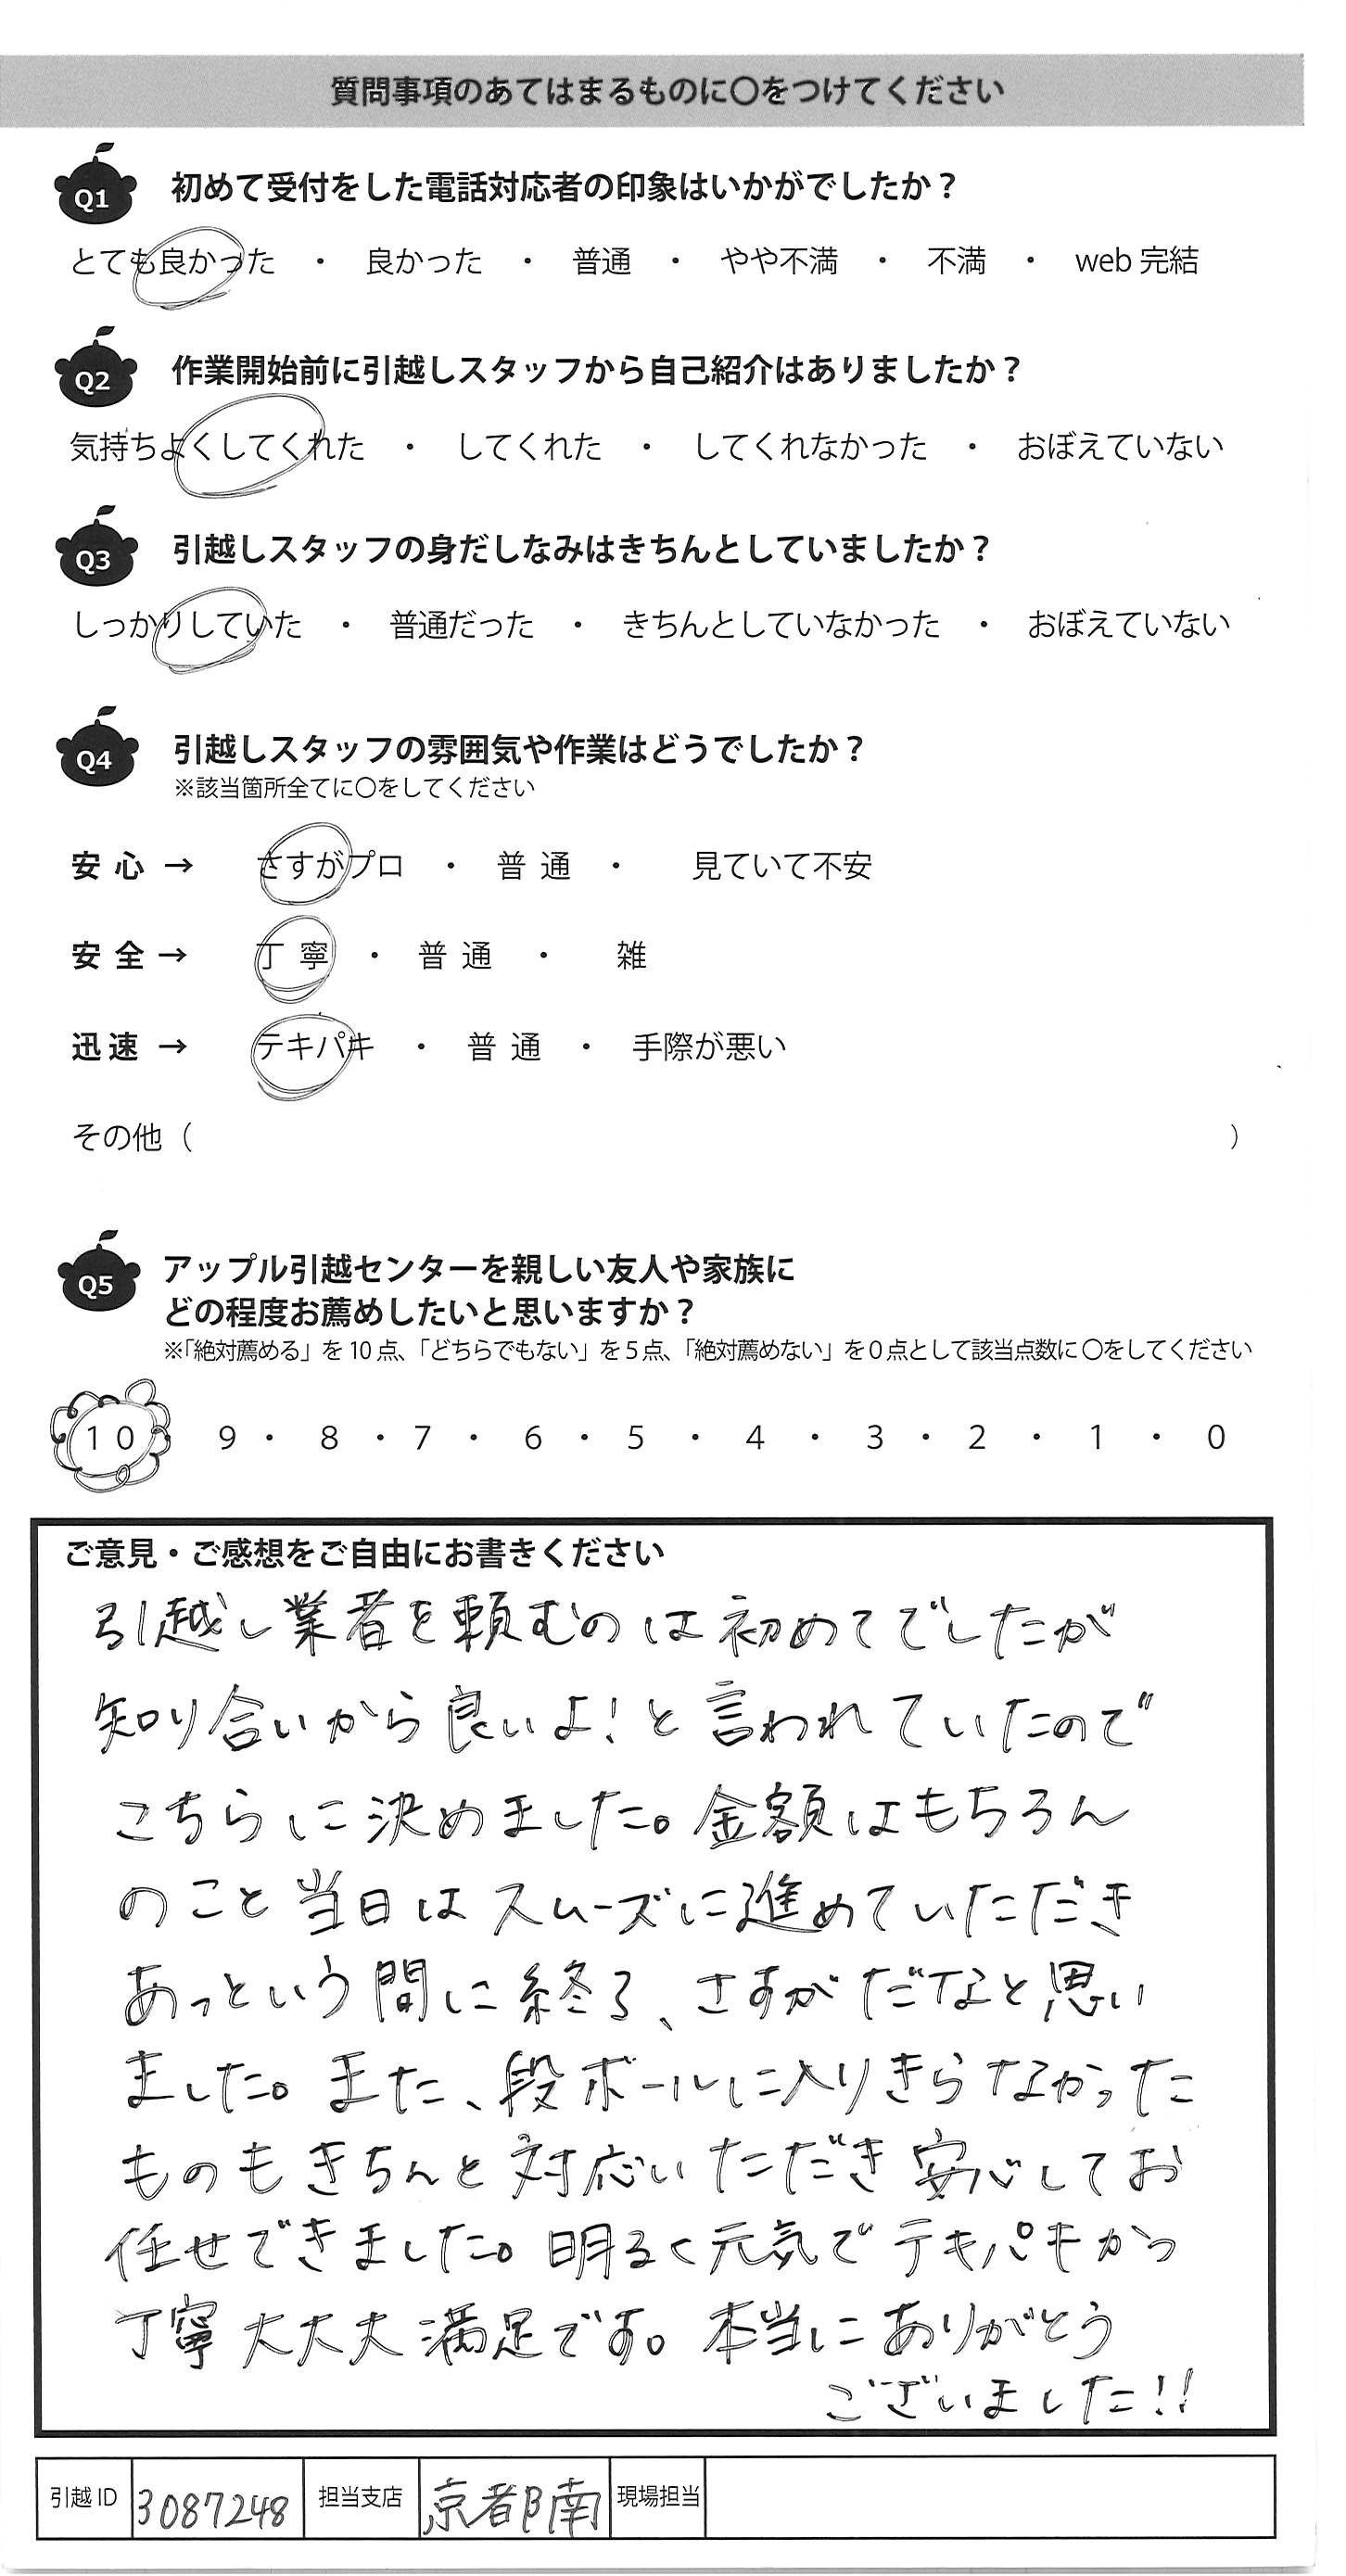 質問事項のあてはまるものに〇をつけてください
Q1 初めて受付をした電話対応者の印象はいかがでしたか？
とても良かった ・ 良かった ・ 普通 ・ やや不満 ・ 不満 ・ web 完結
Q2 作業開始前に引越しスタッフから自己紹介はありましたか？
気持ちよくしてくれた ・ してくれた ・ してくれなかった ・ おぼえていない
Q3 引越しスタッフの身だしなみはきちんとしていましたか？
しっかりしていた ・ 普通だった ・ きちんとしていなかった ・ おぼえていない
Q4 引越しスタッフの雰囲気や作業はどうでしたか？
※該当箇所全てに〇をしてください
安心 → さすがプロ ・ 普通 ・ 見ていて不安
安全 → 丁寧 ・ 普通 ・ 雑
迅速 → テキパキ ・ 普通 ・ 手際が悪い
その他（ ）
Q5 アップル引越センターを親しい友人や家族に
どの程度お薦めしたいと思いますか？
※「絶対薦める」を 10 点、「どちらでもない」を 5 点、「絶対薦めない」を 0 点として該当点数に 〇をしてください
10 9 ・ 8 ・ 7 ・ 6 ・ 5 ・ 4 ・ 3 ・ 2 ・ 1 ・ 0
ご意見・ご感想をご自由にお書きください
引越し業者を頼むのは初めてでしたが
知り合いから良いよ！と言われていたので
こちらに決めました。金額はもちろん
のこと当日はスムーズに進めていただき
あっという間に終る、さすがだなと思い
ました。また、段ボールに入りきらなかった
ものもきちんと対応いただき安心してお
任せできました。明るく元気でテキパキかつ
丁寧大大大満足です。本当にありがとう
ございました!!
引越 ID 3087248 担当支店 京都南 現場担当